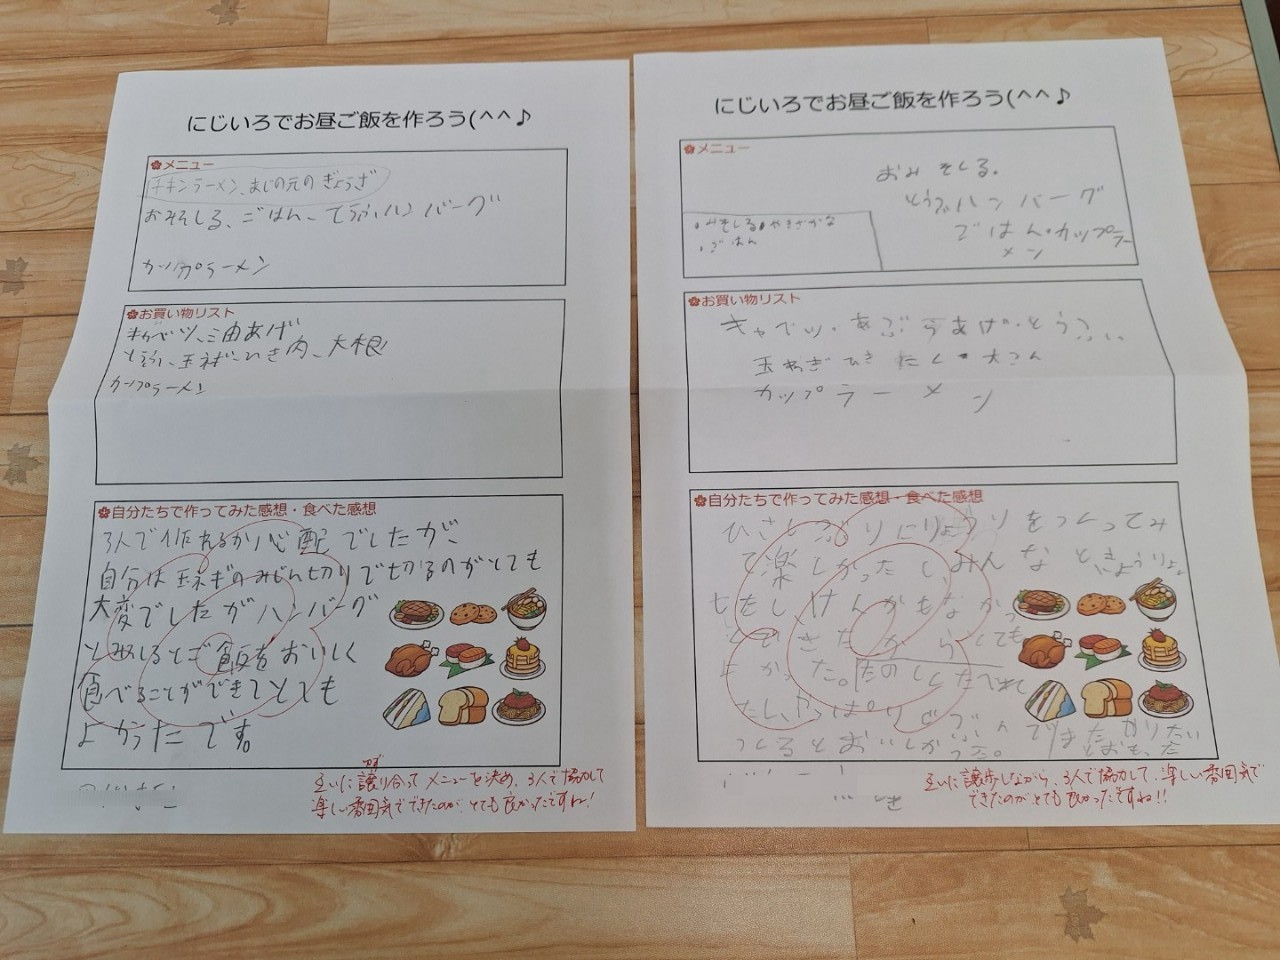 にじいろでお昼ご飯を作ろう(^^♪
メニュー
チキンラーメン、あじの元のぎょうざ
おみそしる、ごはん、とうふハンバーグ
カップラーメン
お買い物リスト
キャベツ、油あげ
とうふ、玉ネギ、ひき肉、大根
カップラーメン
自分たちで作ってみた感想・食べた感想
3人で作れるか心配でしたが、
自分は玉ネギのみじん切りで切るのがとても
大変でしたがハンバーグ
とみそしるとご飯をおいしく
食べることができてとても
よかったです。
互いに譲り合ってメニューを決め、3人で協力して
楽しい雰囲気でできたのが、とても良かったですね!
にじいろでお昼ご飯を作ろう(^^♪
メニュー
おみそしる。
とうふハンバーグ
ごはん・カップラー
メン
・みそしる・やきざかな
・ごはん
お買い物リスト
キャベツ・あぶらあげ・とうふ
玉ねぎ ひきにく・大こん
カップラーメン
自分たちで作ってみた感想・食べた感想
ひさしぶりにりょうりをつくってみ
て楽しかったし、みんなときょうりょく
もだし、けんかもなかっ
できたからとても
よかった。
つくるとおいしかった。
互いに譲歩しながら、3人で協力して、楽しい雰囲気で
できたのがとても良かったですね!!